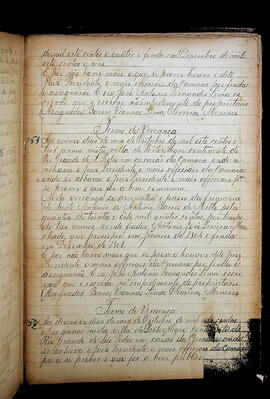 de mil oito centos e quatro e finda em Dezembro de mil
oito centos e seis.
E por não haver mais que se prove houve o dito
Juiz Presidente e mais officiaes da Camara por findo
e assignarão. E eu José Antonio Fernandes Lima es-
crivão que o escrevo no impedimento do proprietario
(Assignados) Barros, Vianna, Lima, Oliveira, Menezes.
Termo de Vereança
51 Aos quinze dias do mez de Outubro de mil oito centos e
tres annos nesta villa de Porto Alegre continente do
Rio Grande de S. Pedro em as casas da Camara onde se
achava o Juiz Presidente e mais officiaes da Camara
onde se achavão o Juiz Presidente e mais officiaes p.ª
se prover o que for a bem commum.
Nesta vereança se arrematou o passo da freguezia
de
quantia de trinta e oito mil quatro centos, por tempo
de tres annos, sendo fiador Antonio José Teixeira
que principia em Janeiro de 1804 e finda
em Dezembro de 1806.
E por não haver mais que se prover houve o dito Juiz
Presidente e mais officiaes da Camara por findo e
assignarão. E eu José Antonio Fernandes Lima escri-
vão que o escrevo no impedimento do proprietario
(Assignados) Barros, Vianna, Lima, Oliveira, Menezes
Termo de Vereança
52 Aos dezenove dias do mez de Outubro de mil oito centos
e tres annos nesta villa de Porto Alegre continente do
Rio Grande de São Pedro em casas da Camara onde
se achava o Juiz Presidente e mais officiaes da Camara
para se prover o que for a bem publico